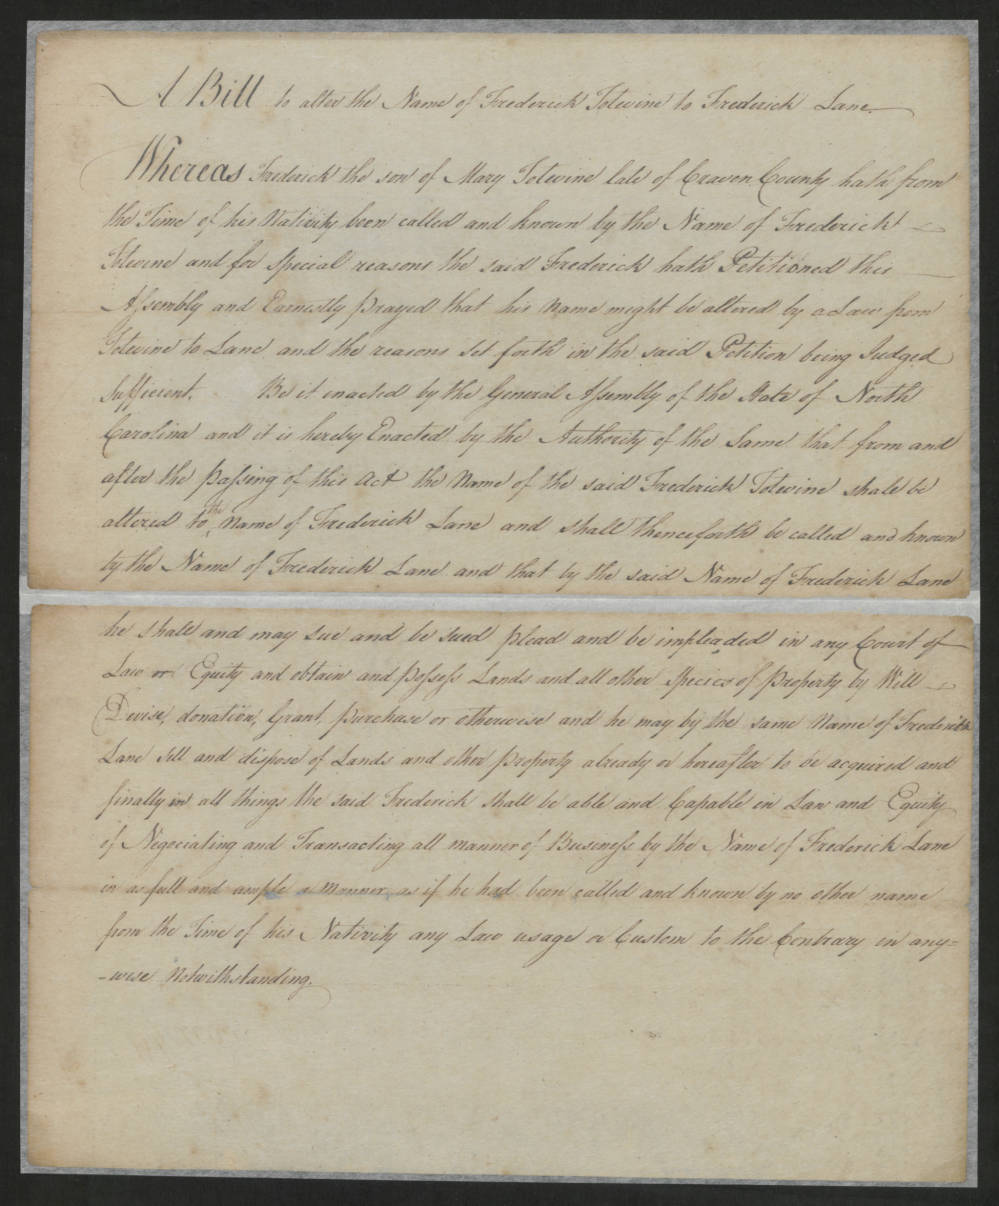 A Bill to alter the Name of Frederick Totewine to Frederick Lane.
Whereas Frederick the son of Mary Totewine late of Craven County hath from
the Time of his Nativity been called and known by the Name of Frederick
Totewine and for Special reasons the said Frederick hath Petitioned this
Assembly and Earnestly prayed that his Name might be altered by a Law from
Totewine to Lane and the reasons set forth in the said Petition being Judged
Sufficient. Be it enacted by the General Assembly of the State of North
Carolina and it is hereby Enacted by the Authority of the Same that from and
after the passing of this Act the Name of the said Frederick Totewine shall be
altered to the Name of Frederick Lane and shall thenceforth be called and known
by the Name of Frederick Lane and that by the said Name of Frederick Lane
he shall and may sue and be sued plead and be impleaded in any Court of
Law or Equity and obtain and possess Lands and all other Species of property by Will
Devise, donation, Grant, purchase or otherwise and he may by the same Name of Frederick
Lane sell and dispose of Lands and other property already or hereafter to be acquired and
finally in all things the said Frederick shall be able and Capable in Law and Equity
of Negociating and Transacting all manner of Business by the Name of Frederick Lane
in as full and ample a manner as if he had been called and known by no other name
from the Time of his Nativity any Law usage or Custom to the Contrary in any=
-wise Notwithstanding.